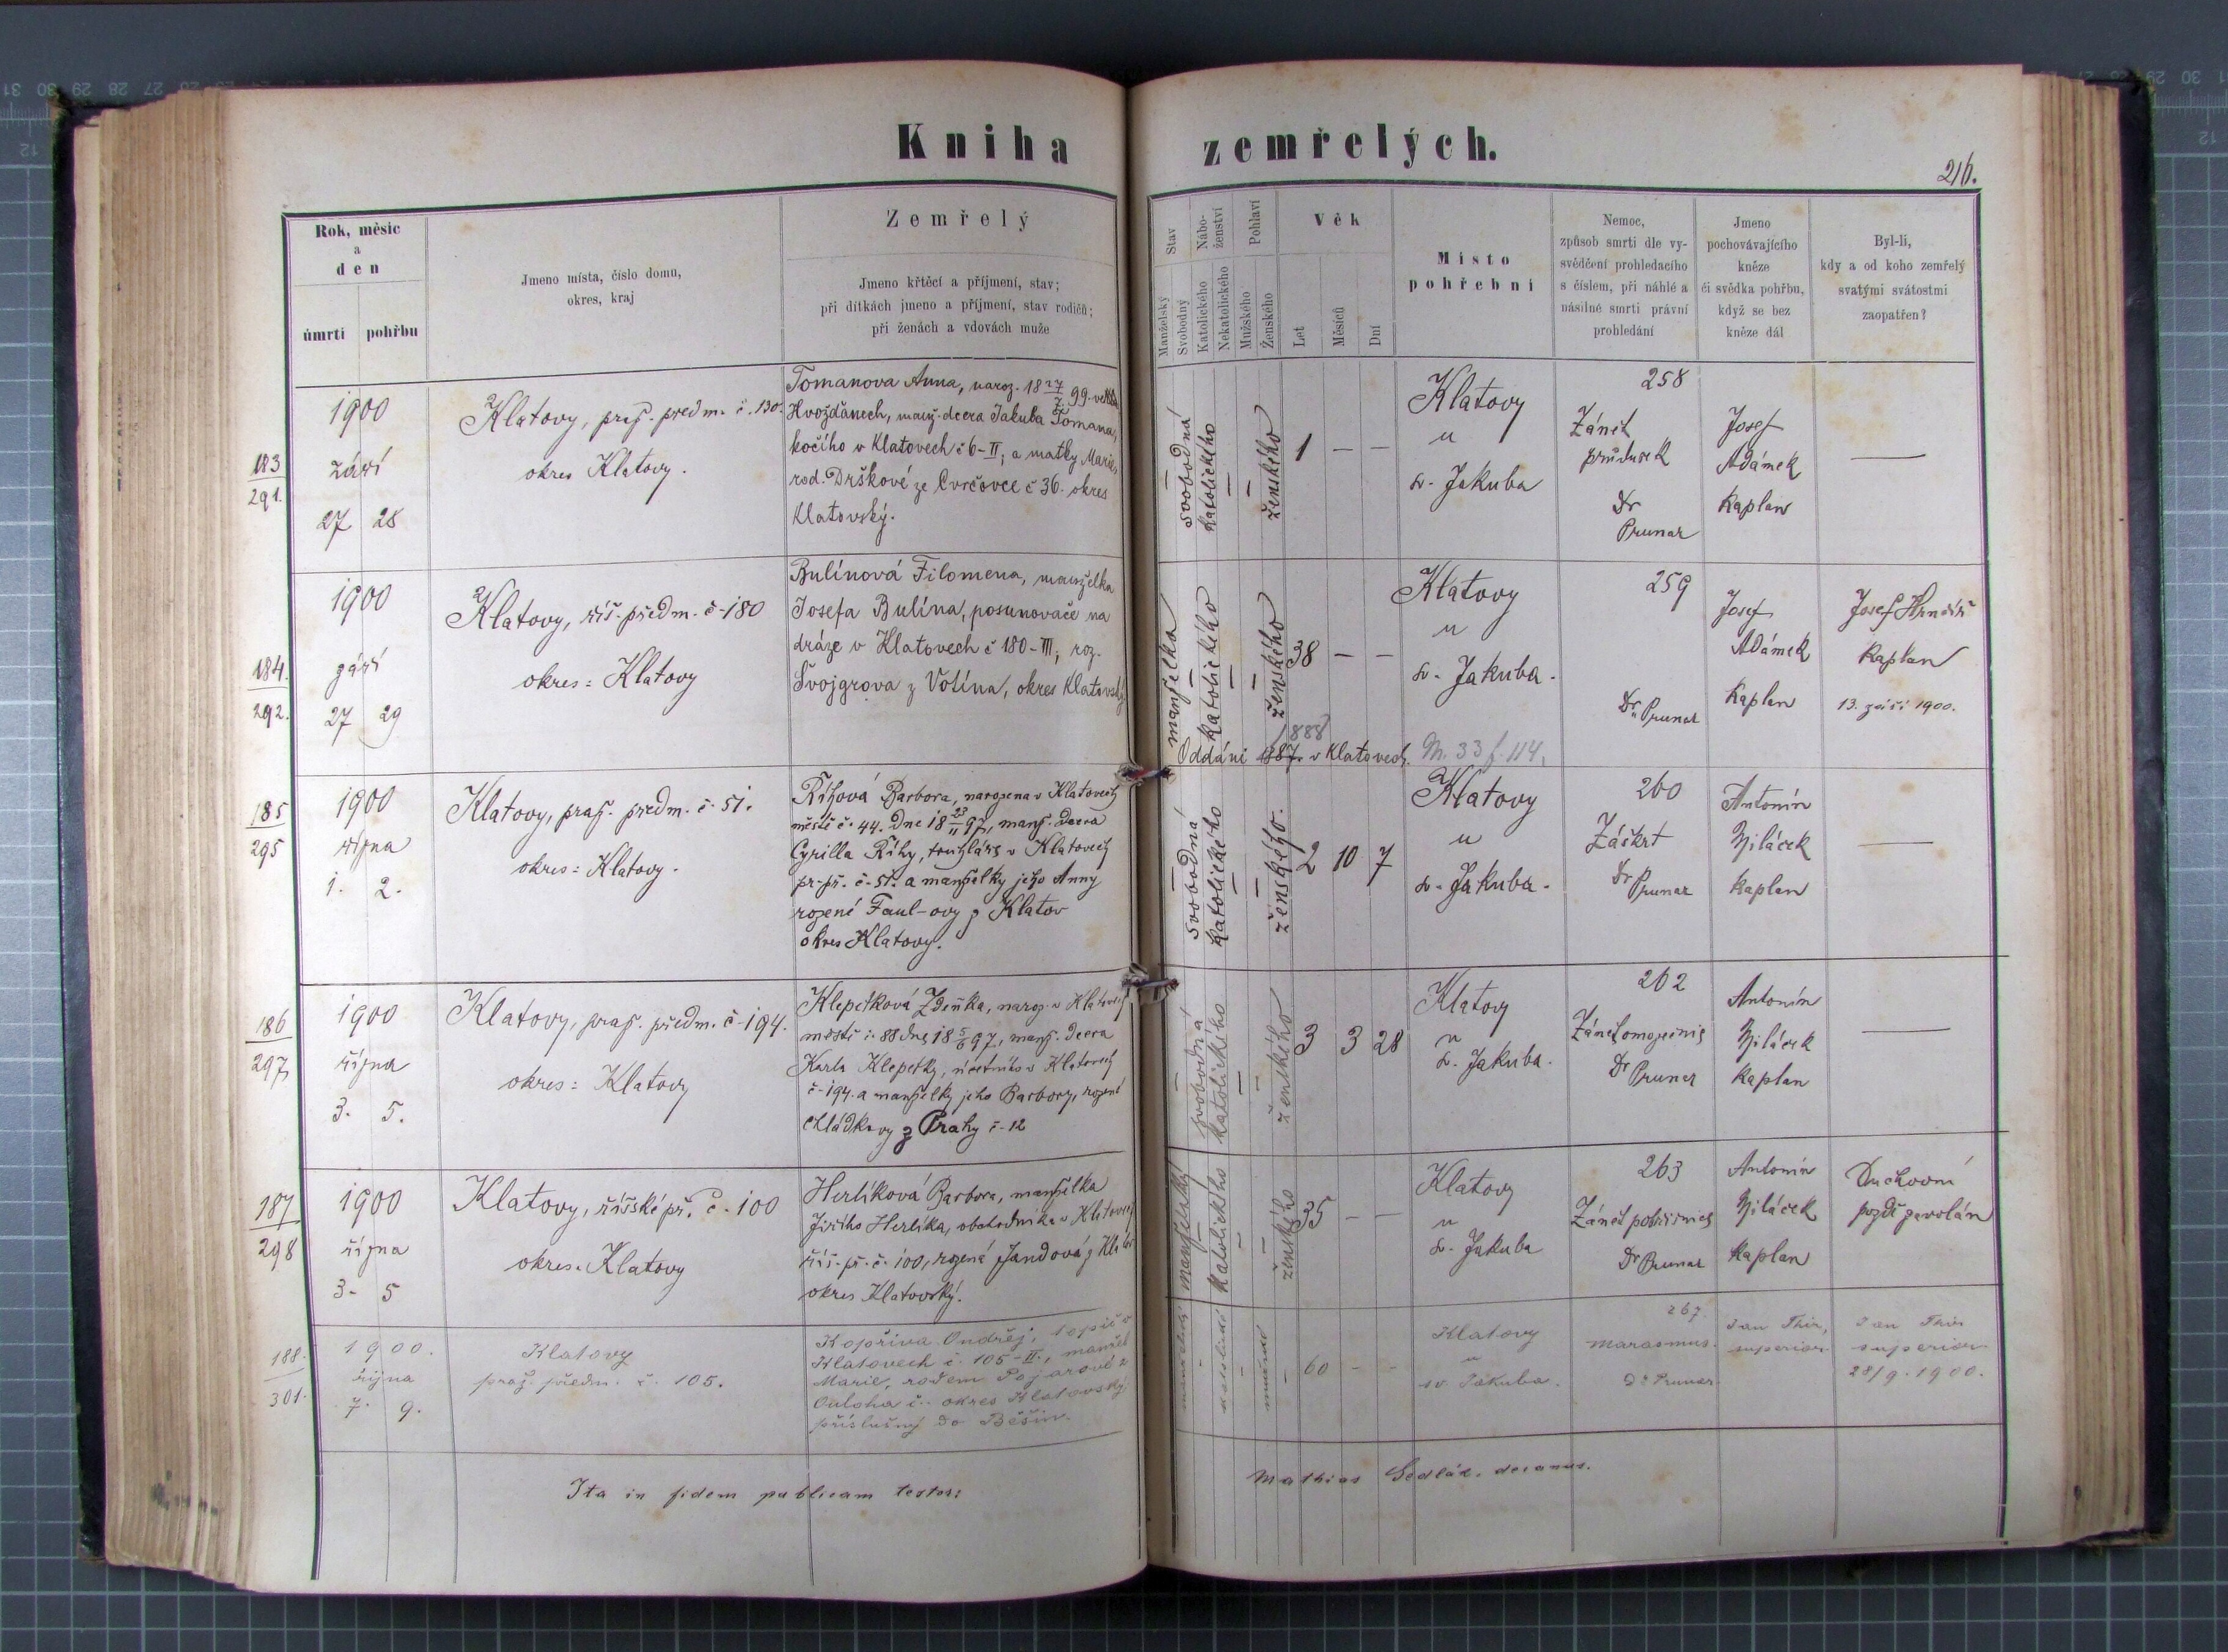 Kniha zemřelých.
216.
Rok, měsíc
a
den
úmrtí pohřbu
Jmeno místa, číslo domu,
okres, kraj
Zemřelý
Jmeno křtěcí a příjmení, stav;
při dítkách jmeno a příjmení, stav rodičů;
při ženách a vdovách muže
Stav
Manželský
Svobodný
Nábo-
ženství
Katolického
Nekatolického
Pohlaví
Mužského
Ženského
Věk
Let
Měsíců
Dní
Místo
pohřební
Nemoc,
způsob smrti dle vy-
svědčení prohledacího
s číslem, při náhlé a
násilné smrti právní
prohledání
Jmeno
pochovávajícího
kněze
či svědka pohřbu,
když se bez
kněze dál
Byl-li,
kdy a od koho zemřelý
svatými svátostmi
zaopatřen?
183
291.
1900
září
27 28
Klatovy, praž. předm. č. 130.
okres Klatovy.
Tomanova Anna, naroz. 18 27/7 99
Hvožďanech, manž. dcera Jakuba Tomana,
kočího v Klatovech č 6-II; a matky Marie,
rod. Drškové ze č 36. okres
Klatovský.
— svobodná
katolického —
— ženského
1 — —
Klatovy
u
sv. Jakuba
258
Zánět
průdušek
Dr
Prunar
Josef
Adámek
kaplan
—
184.
292.
1900
září
27 29
Klatovy, říš. předm. č. 180
okres: Klatovy
Bulínová Filomena, manželka
Josefa Bulína, posunovače na
dráze v Klatovech č 180-III; roz.
Švojgrova z Votína, okres Klatovský
manželka —
katolického —
— ženského
38 — —
Klatovy
u
sv. Jakuba.
259
Dr. Prunar
Josef
Adámek
kaplan
Josef Hrnčíř
kaplan
13. září 1900.
888
Oddáni 1887. v Klatovech. M. 33 f. 114.
185
295
1900
října
1. 2.
Klatovy, praž. předm. č. 51.
okres: Klatovy.
Říhová Barbora, narozena v Klatovech
městě č. 44. dne 18 23/11 97, manž. dcera
Cyrilla Říhy, truhláře v Klatovech
pr. př. č. 51. a manželky jeho Anny
rozené Faul-ovy z Klatov
okres Klatovy.
— svobodná
katolického —
— ženského.
2 10 7
Klatovy
u
sv. Jakuba.
260
Záškrt
Dr Prunar
Antonín
Žiláček
kaplan
—
186
297
1900
října
3. 5.
Klatovy, praž. předm. č. 194.
okres: Klatovy
Klepetková Zdeňka, naroz. v Klatovech
městě č. 88 dne 18 5/6 97, manž. dcera
Karla Klepetky, v Klatovech
č. 194. a manželky jeho Barbory, rozené
Chládkovy z Prahy č. 12
— svobodná
katolického —
— ženského
3 3 28
Klatovy
u
sv. Jakuba.
262
Dr Prunar
Antonín
Žiláček
kaplan
—
187
298
1900
října
3. 5
Klatovy, říšské př. č. 100
okres. Klatovy
Herlíková Barbora, manželka
Jiřího Herlíka, obchodníka v Klatovech
říš. př. č. 100, rozená Jandová z Klatov
okres Klatovský.
manželský —
katolického —
— ženského
35 — —
Klatovy
u
sv. Jakuba
263
Zánět pobřišnice
Dr Prunar
Antonín
Žiláček
kaplan
Duchovní
pozdě zavolán
188.
301.
1900.
října
7. 9.
Klatovy
praž. předm. č. 105.
Kopřiva Ondřej, topič v
Klatovech č. 105-II., manžel
Marie, rodem Pojarové z
okres Klatovský
příslušný do Běšin.
60 - -
Klatovy
u
sv. Jakuba.
267.
marasmus.
Dr Prunar.
Jan Thir,
superior
Jan Thir
superior
28/9. 1900.
Ita in fidem publicam testor:
Mathias Sedlák, decanus.